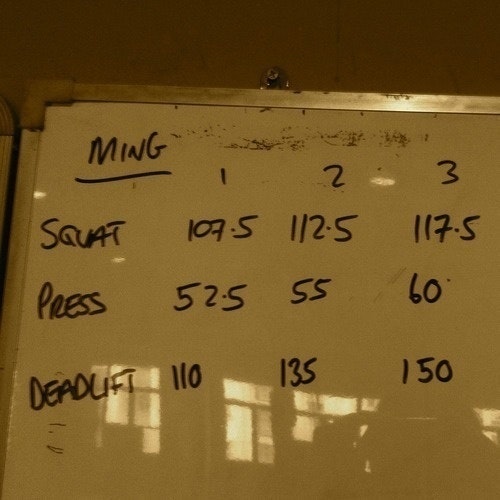 MING
1 2 3
SQUAT 107.5 112.5 117.5
PRESS 52.5 55 60
DEADLIFT 110 135 150